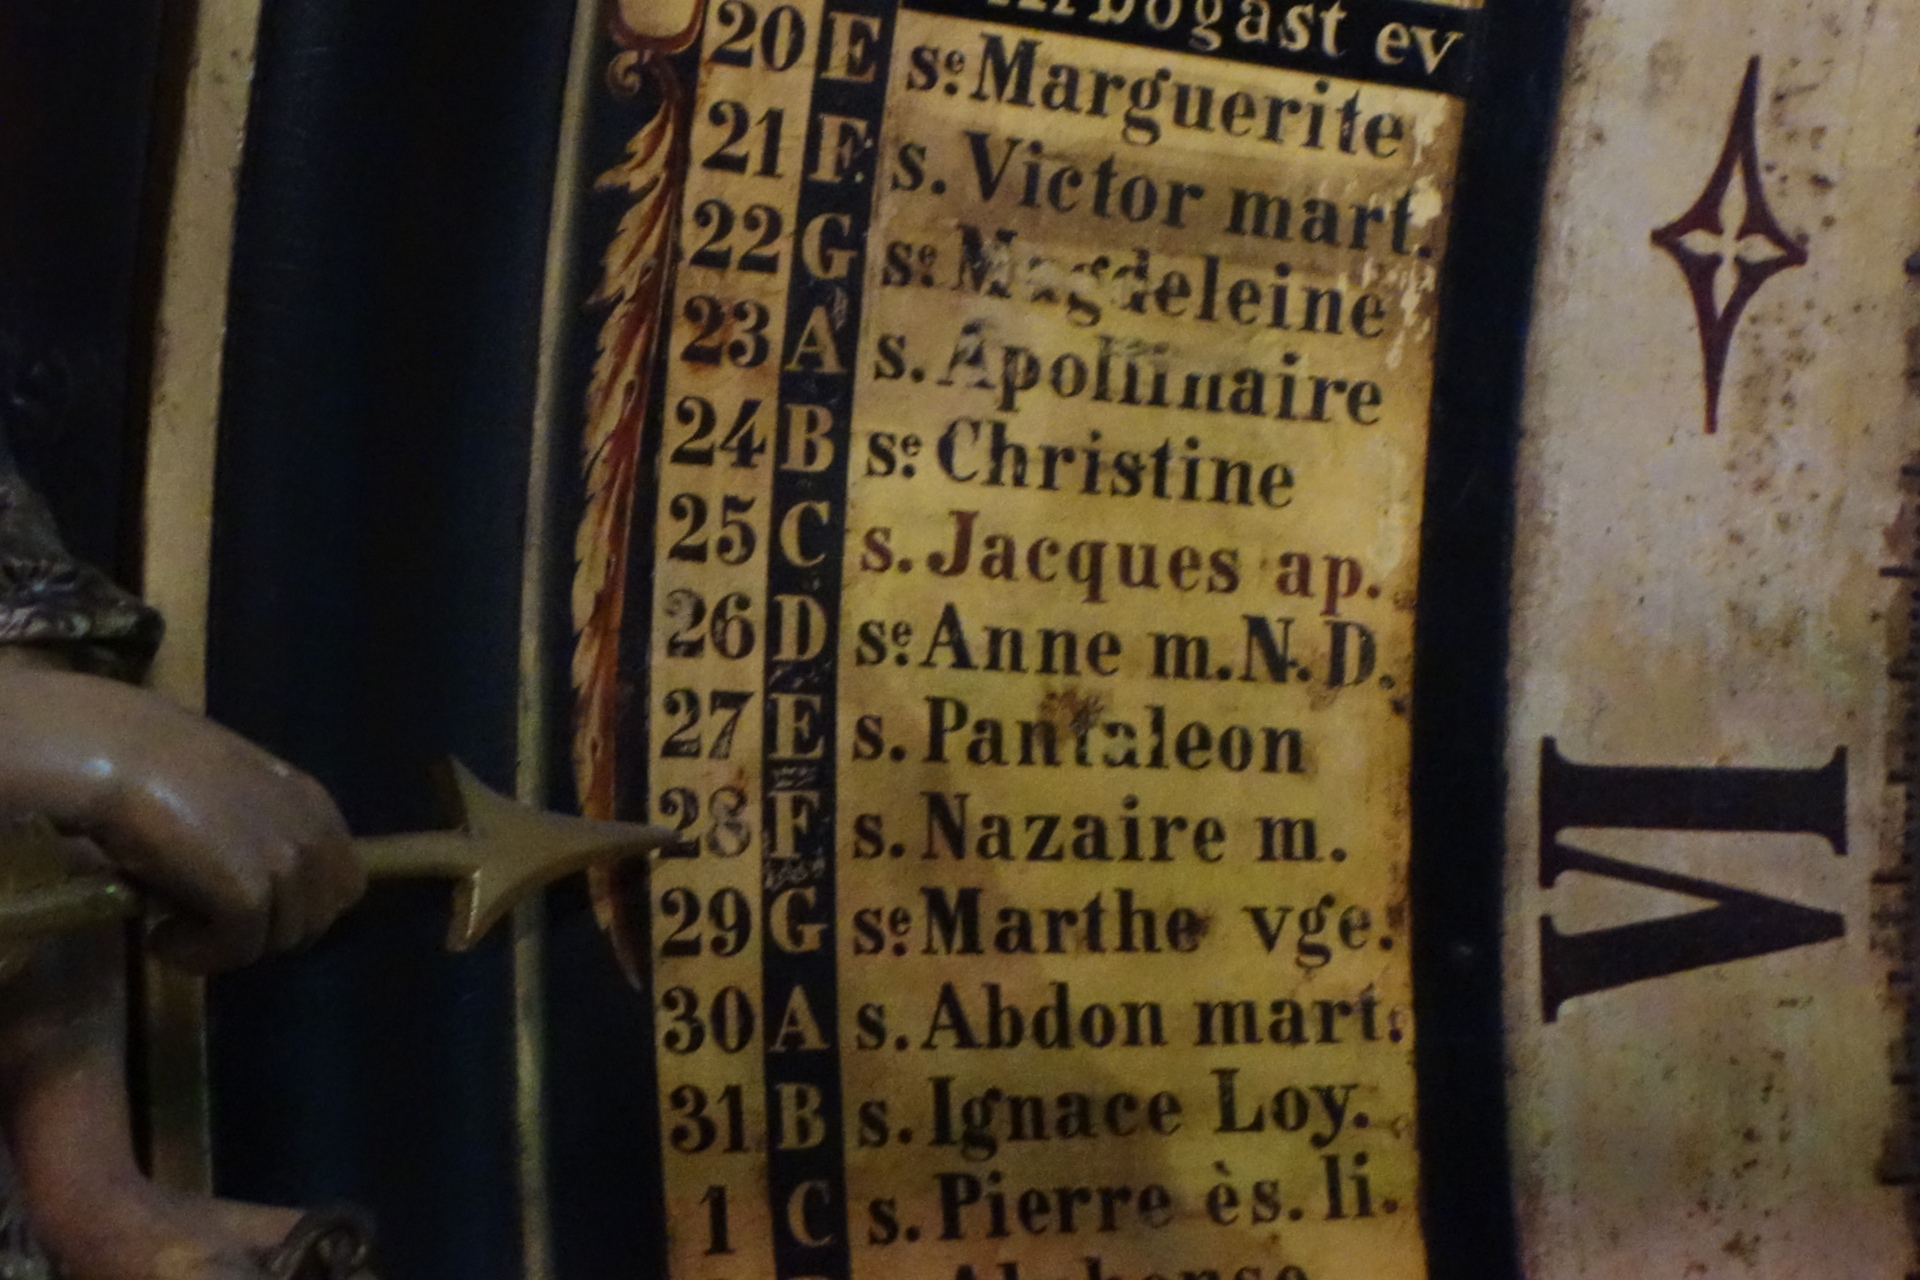 Arbogast ev
20 E se. Marguerite
21 F s. Victor mart.
22 G se. Magdeleine
23 A s. Apollinaire
24 B se. Christine
25 C s. Jacques ap.
26 D se. Anne m. N. D.
27 E s. Pantaleon
28 F s. Nazaire m.
29 G se. Marthe vge.
30 A s. Abdon mart.
31 B s. Ignace Loy.
1 C s. Pierre ès. li.
VI